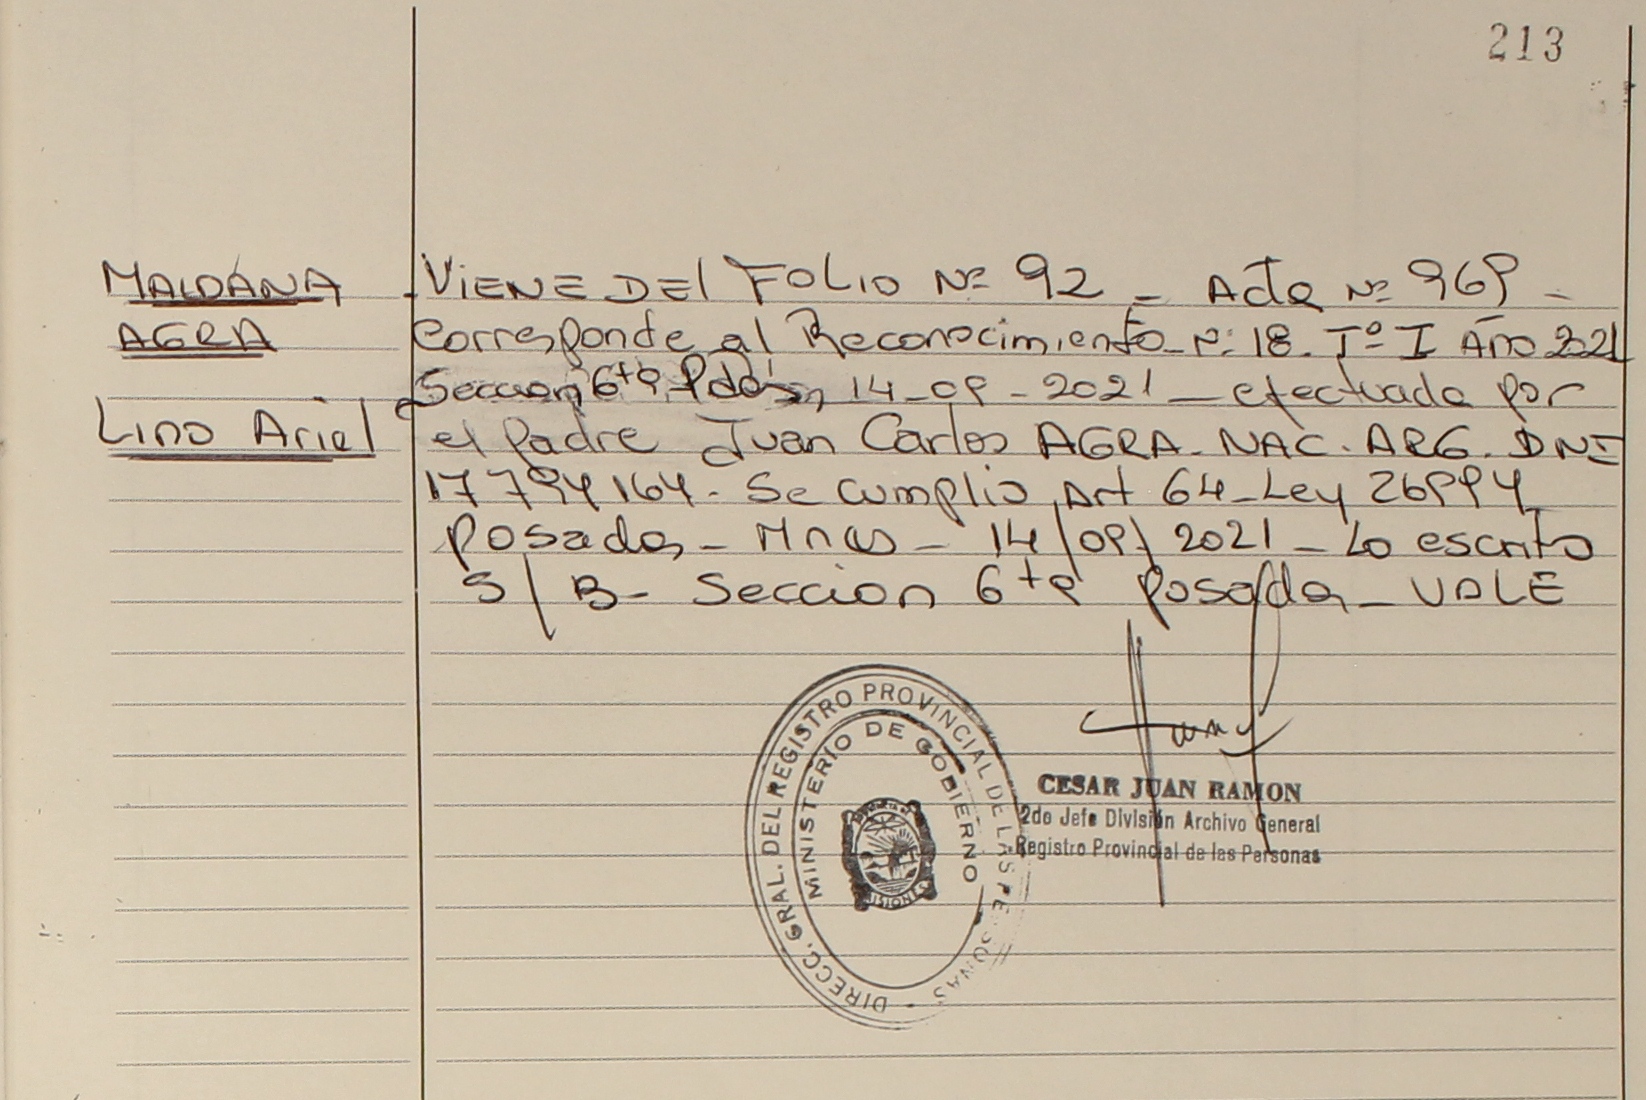 213
MALDANA
AGRA
Lino Ariel
VIENE DEl FOLIO Nº 92 - Acta Nº 969 -
Corresponde al Reconocimiento Nº 18. Tº I Año 2021
Seccion 6ta Pdas, 14-09-2021 - efectuada por
el Padre Juan Carlos AGRA. NAC. ARG. DNI
17794164. Se cumplio Art 64-Ley 26994
Posadas - Mnes - 14/09/2021 - Lo escrito
S/B- Seccion 6ta Posadas - VALE
DIRECC. GRAL. DEL REGISTRO PROVINCIAL DE LAS PERSONAS
MINISTERIO DE GOBIERNO
CESAR JUAN RAMON
2do Jefe División Archivo General
Registro Provincial de las Personas